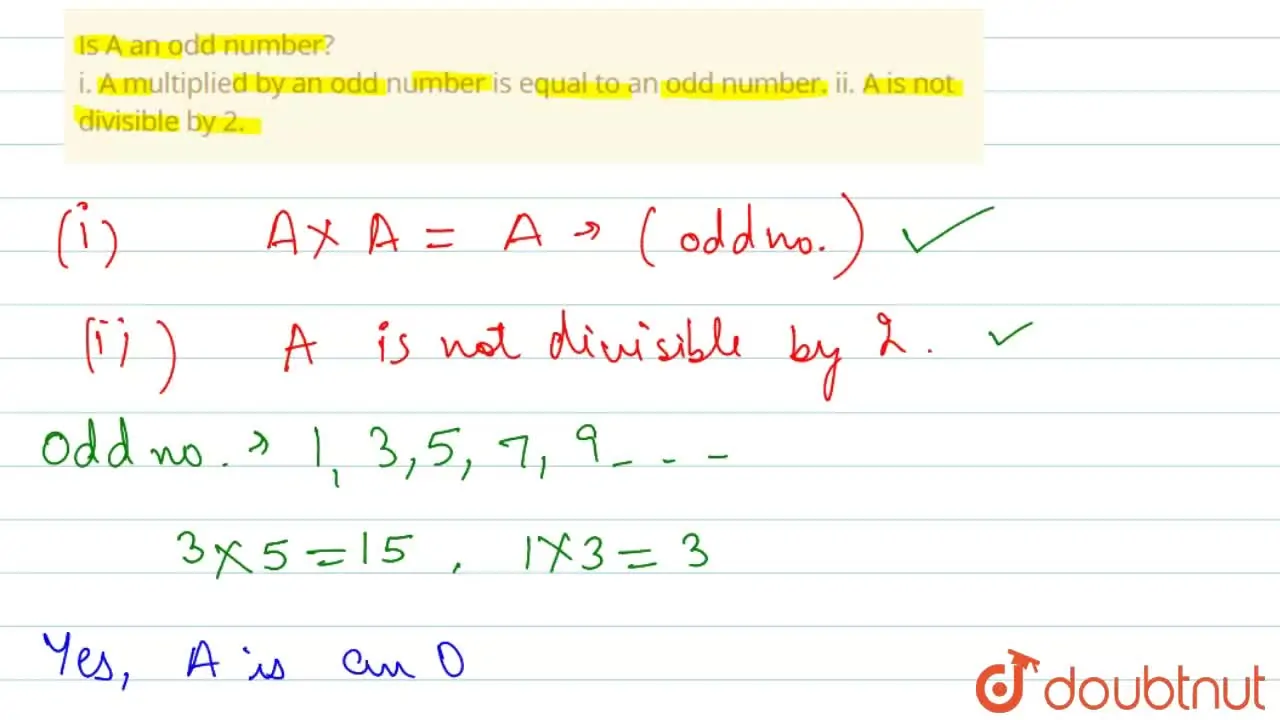 Is A an odd number?
i. A multiplied by an odd number is equal to an odd number. ii. A is not
divisible by 2.
(i) A × A = A → (odd no.) ✓
(ii) A is not divisible by 2. ✓
Odd no. → 1, 3, 5, 7, 9 - - -
3 × 5 = 15 , 1 × 3 = 3
Yes, A is an O
doubtnut